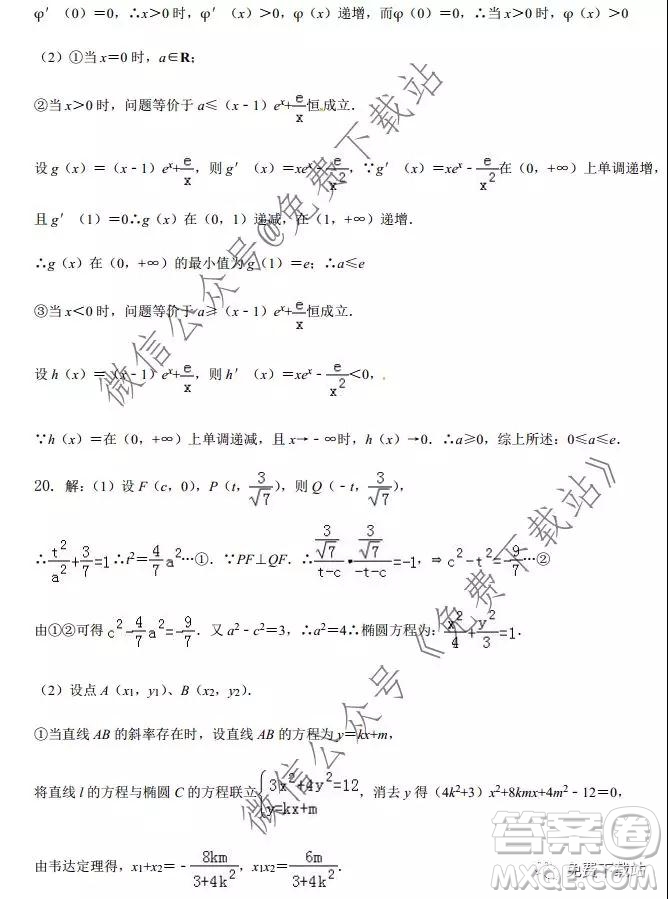 φ′（0）=0，∴x＞0时，φ′（x）＞0，φ（x）递增，而φ（0）=0，∴当x＞0时，φ（x）＞0
（2）①当x＝0时，a∈R；
②当x＞0时，问题等价于a≤（x﹣1）eˣ+e/x恒成立．
设g（x）＝（x﹣1）eˣ+e/x，则g′（x）＝xeˣ﹣e/x²，∵g′（x）＝xeˣ﹣e/x²在（0，+∞）上单调递增，
且g′（1）＝0∴g（x）在（0，1）递减，在（1，+∞）递增．
∴g（x）在（0，+∞）的最小值为g（1）＝e；∴a≤e
③当x＜0时，问题等价于a≥（x﹣1）eˣ+e/x恒成立．
设h（x）＝（x﹣1）eˣ+e/x，则h′（x）＝xeˣ﹣e/x²＜0，
∵h（x）＝在（0，+∞）上单调递减，且x→﹣∞时，h（x）→0．∴a≥0，综上所述：0≤a≤e．
20．解：（1）设F（c，0），P（t，3/√7），则Q（﹣t，3/√7），
∴t²/a²+3/7=1∴t²＝4/7a²…①．∵PF⊥QF．∴(3/√7)/(t-c)•(3/√7)/(-t-c)=-1，⇒c²-t²=-9/7…②
由①②可得c²-4/7a²=-9/7．又a²﹣c²＝3，∴a²＝4∴椭圆方程为：x²/4+y²/3=1．
（2）设点A（x₁，y₁）、B（x₂，y₂）．
①当直线AB的斜率存在时，设直线AB的方程为y＝kx+m，
将直线l的方程与椭圆C的方程联立{3x²+4y²=12，y=kx+m，消去y得（4k²+3）x²+8kmx+4m²﹣12＝0，
由韦达定理得，x₁+x₂＝﹣8km/(3+4k²)，x₁x₂＝6m/(3+4k²)．
微信公众号@免费下载站
微信公众号《免费下载站》
答案卷
免费下载站